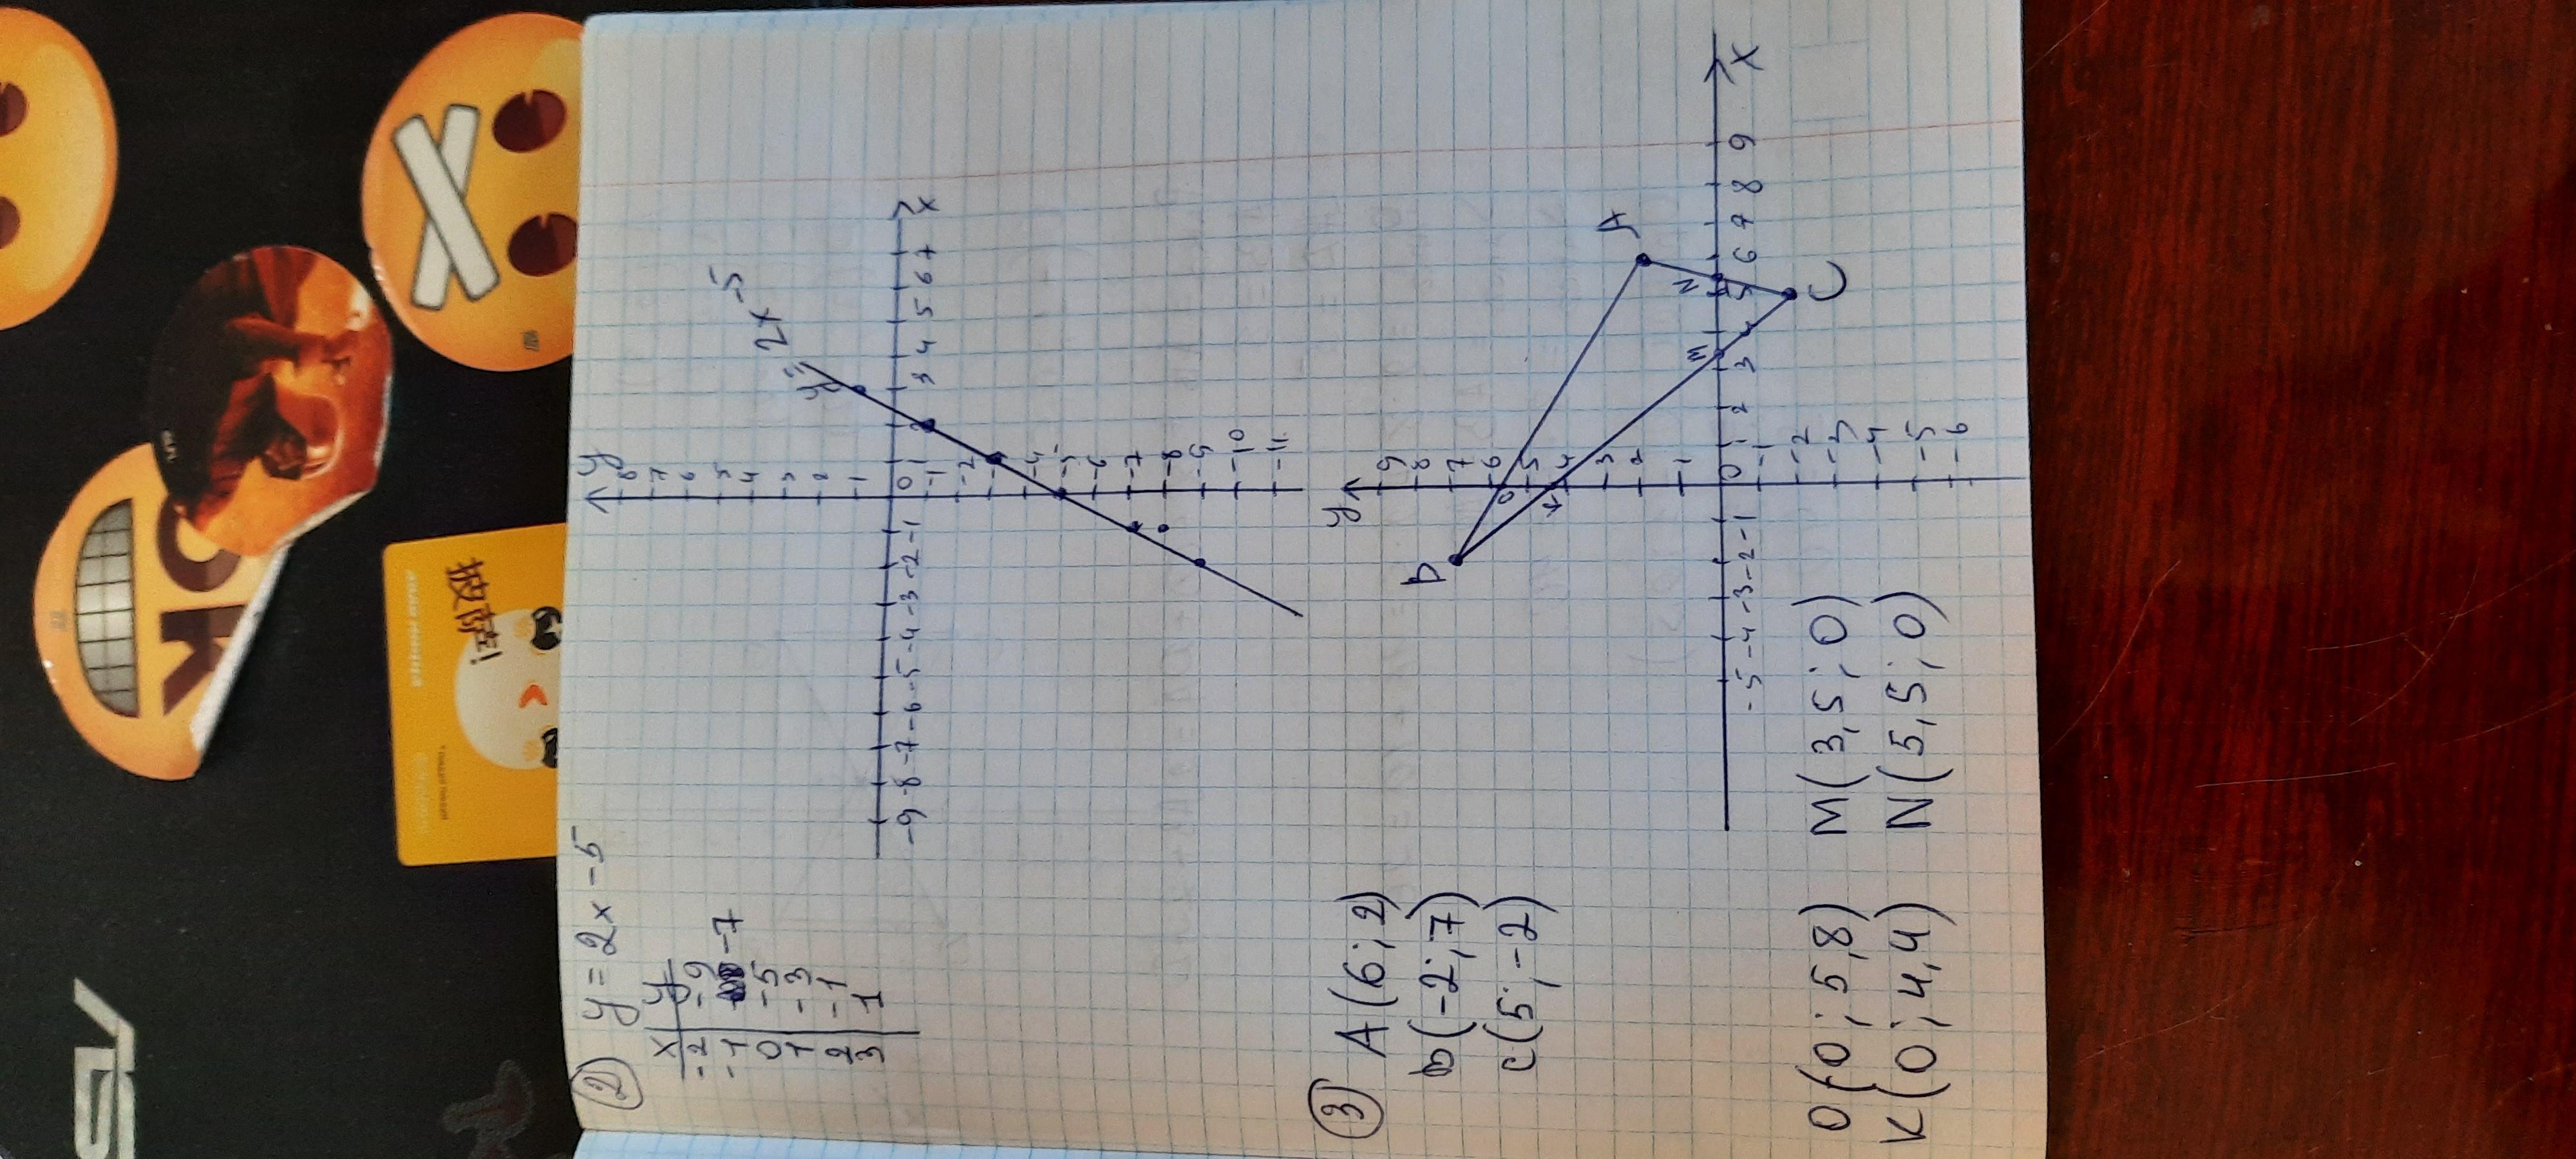 ② y = 2x - 5
x | y
-2 | -9
-1 | -7
0 | -5
1 | -3
2 | -1
3 | 1
y
8
7
6
5
4
3
2
1
-9 -8 -7 -6 -5 -4 -3 -2 -1 0 1 2 3 4 5 6 7 x
-1
-2
-4
-5
-6
-7
-8
-9
-10
-11
y = 2x - 5
③ A (6 ; 2)
b (-2 ; 7)
c (5 ; -2)
y
9
8
7
6
5
4
3
2
1
-5 -4 -3 -2 -1 0 1 2 3 4 5 6 7 8 9 x
-1
-2
-3
-4
-5
-6
b
A
C
O
K
M
N
O (0 ; 5,8) M (3,5 ; 0)
K (0 ; 4,4) N (5,5 ; 0)
OK
披萨!